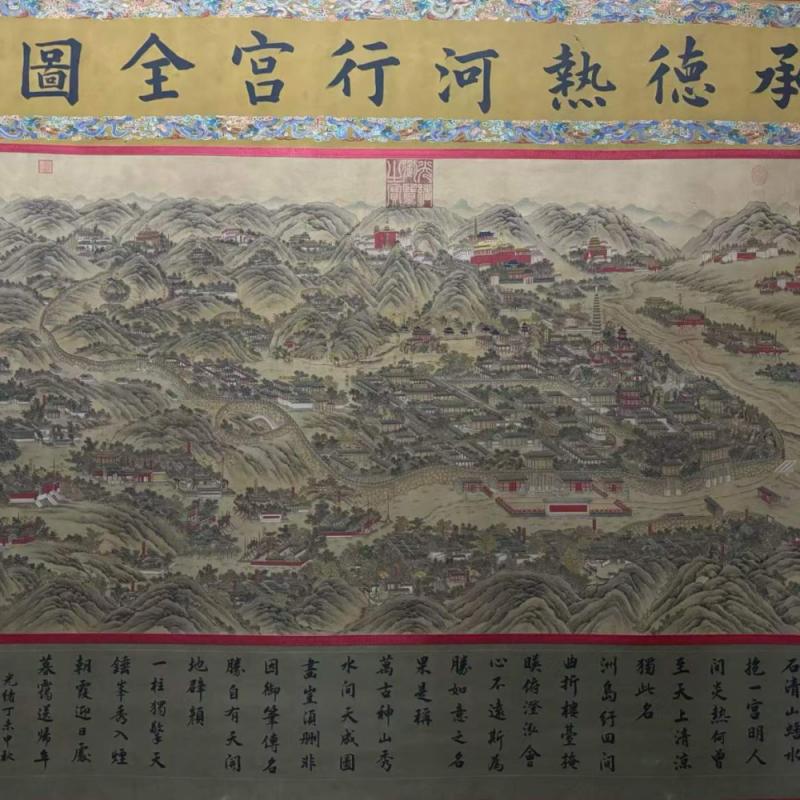 承德熱河行宮全圖
石清山蟠水
抱一宮明人
間炎熱何曾
至天上清涼
獨此名
洲島紆田間
曲折樓臺掩
暎俯澄泓會
心不遠斯爲
勝如意之名
果是稱
萬古神山秀
水間天成圖
畫室須刪非
因御筆傳名
勝自有天開
地辟
一柱獨擎天
錘峯秀入煙
朝霞迎日處
暮靄送歸年
光緒丁未中秋